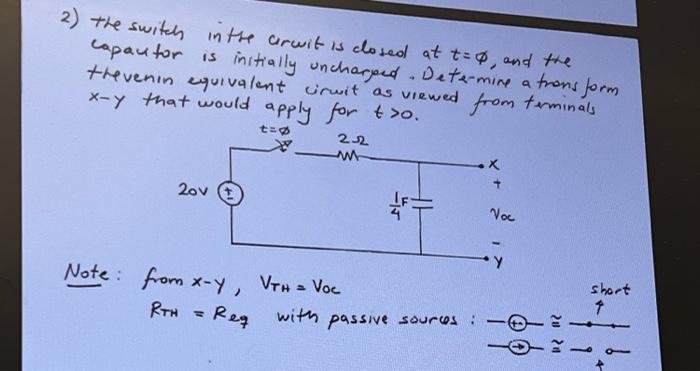 2) the switch in the circuit is closed at t=∅, and the
capacitor is initially uncharged. Determine a transform
thevenin equivalent circuit as viewed from terminals
x-y that would apply for t>0.
t=∅
2Ω
x
+
20V
+
1/4 F
Voc
-
y
Note: from x-y, VTH = Voc
short
RTH = Req with passive sources : ≅
≅